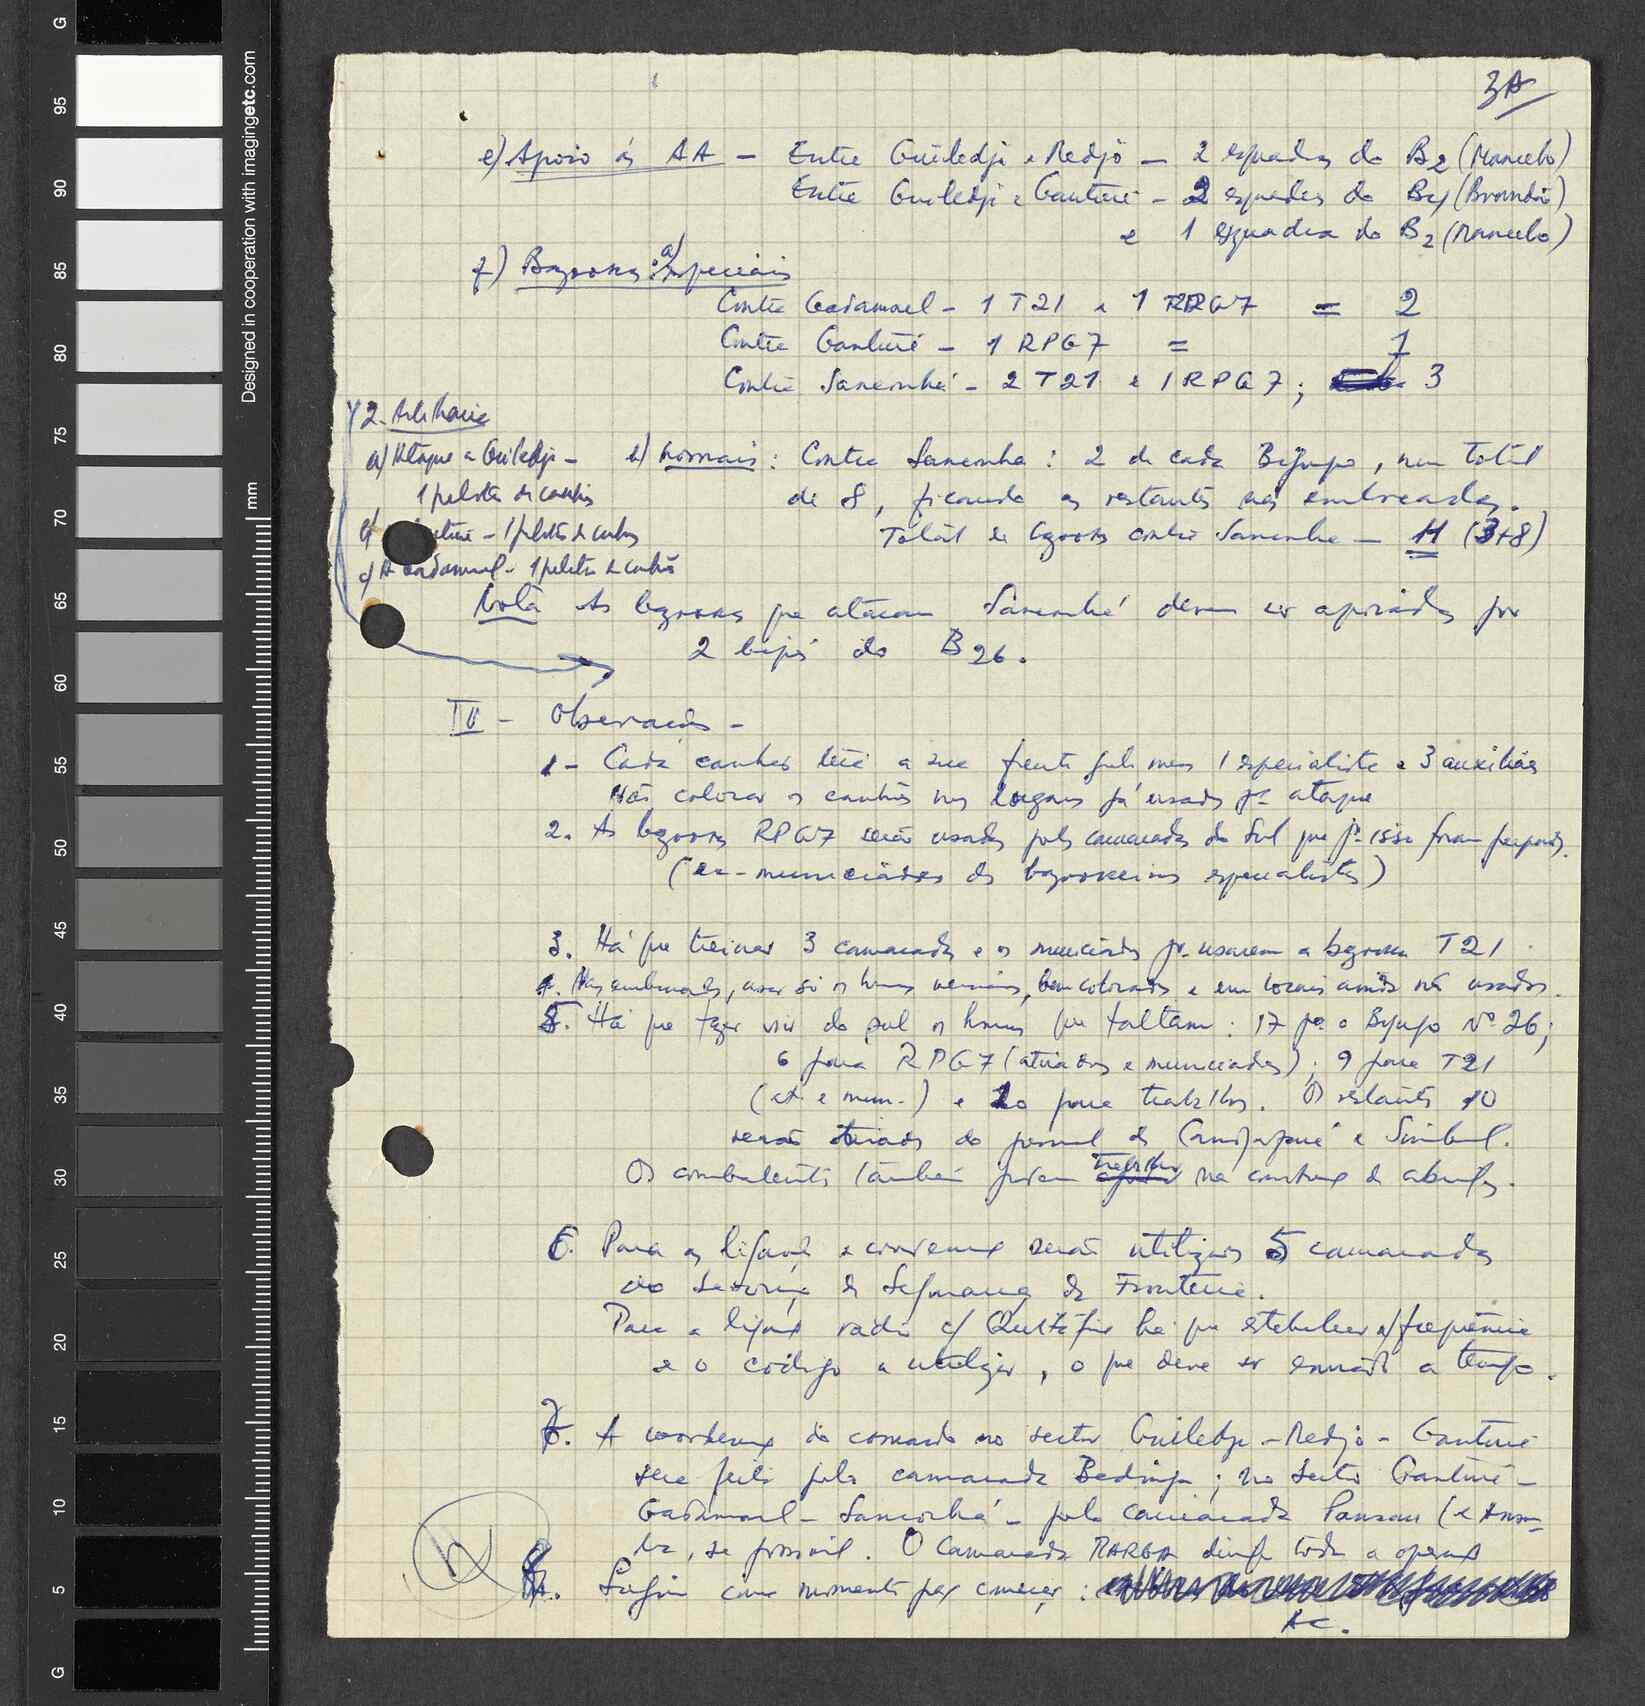 3A
e) Apoio às AA - Entre Guiledji e Medjo - 2 esquadras do B2 (Mancebo)
Entre Guiledji e Ganturé - 2 esquadras do B (Brandão)
e 1 esquadra do B2 (Mancebo)
f) Bazookas: a) especiais
Contra Gadamael - 1 T21 e 1 RPG7 = 2
Contra Ganturé - 1 RPG7 = 1
Contra Sanconhá - 2 T21 e 1 RPG7; 3
2. Artilharia
a) Ataque a Guiledji -
1 pelotão de canhões
b) normais: Contra Sanconha: 2 de cada Bigrupo, num total
de 8, ficando as restantes nas emboscadas.
- 1 pelotão de canhões
Total de bazookas contra Sanconha - 11 (3+8)
c) A Gadamael - 1 pelotão de canhões
Nota As bazookas que atacam Sanconhá devem ser apoiadas por
2 bipé do B26.
IV - Observações -
1 - Cada canhão terá a sua frente pelo menos 1 especialista e 3 auxiliares
Não colocar os canhões nos lugares já usados pª ataque
2. As bazookas RPG7 serão usadas pelos camaradas do Sul que pª isso foram preparados.
(ex-municiadores dos bazookeiros especialistas)
3. Há que treinar 3 camaradas e os municiadores pª usarem a bazooka T21
4. Nas emboscadas, usar só os homens necessários, bem colocados e em locais ainda não usados.
5. Há que fazer vir do sul os homens que faltam: 17 pª o Bigrupo Nº 26;
6 para RPG7 (atiradores e municiadores); 9 para T21
(at. e mun.) e 20 para trabalhos. Os restantes 10
serão tirados do pessoal de e Simbel.
Os combatentes também podem trabalhar na construção de abrigos.
6. Para as ligações e coordenação serão utilizados 5 camaradas
do Serviço de Segurança da Fronteira.
Para a ligação radio c/ Quitáfine há que estabelecer a frequência
e o código a utilizar, o que deve ser enviado a tempo.
7. A coordenação do comando no sector Guiledje - Medjo - Ganturé
será feita pelo camarada Bedinga; no sector Ganturé -
Gadamael - Sanconhá - pelo camarada Pansau (e
se possível. O Camarada NARGA dirige toda a operação
8. Sugiro como momento para começar:
AC.
Designed in cooperation with imagingetc.com
mm
G
95
90
85
80
75
70
65
60
55
50
45
40
35
30
25
20
15
10
5
G